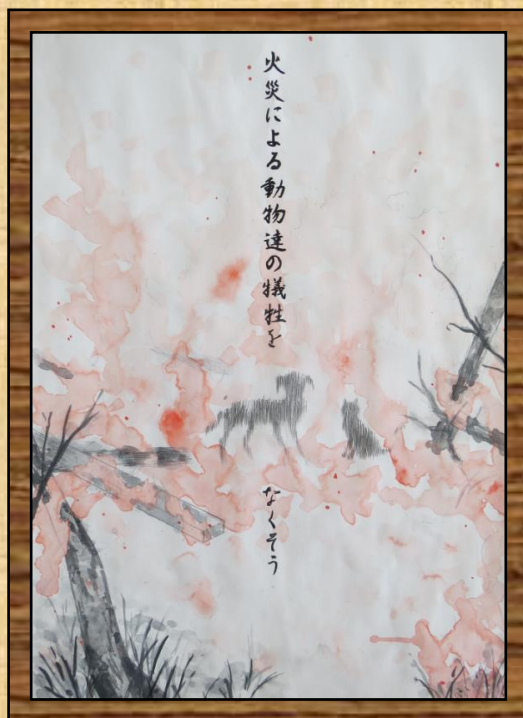 火災による動物達の犠牲を
なくそう